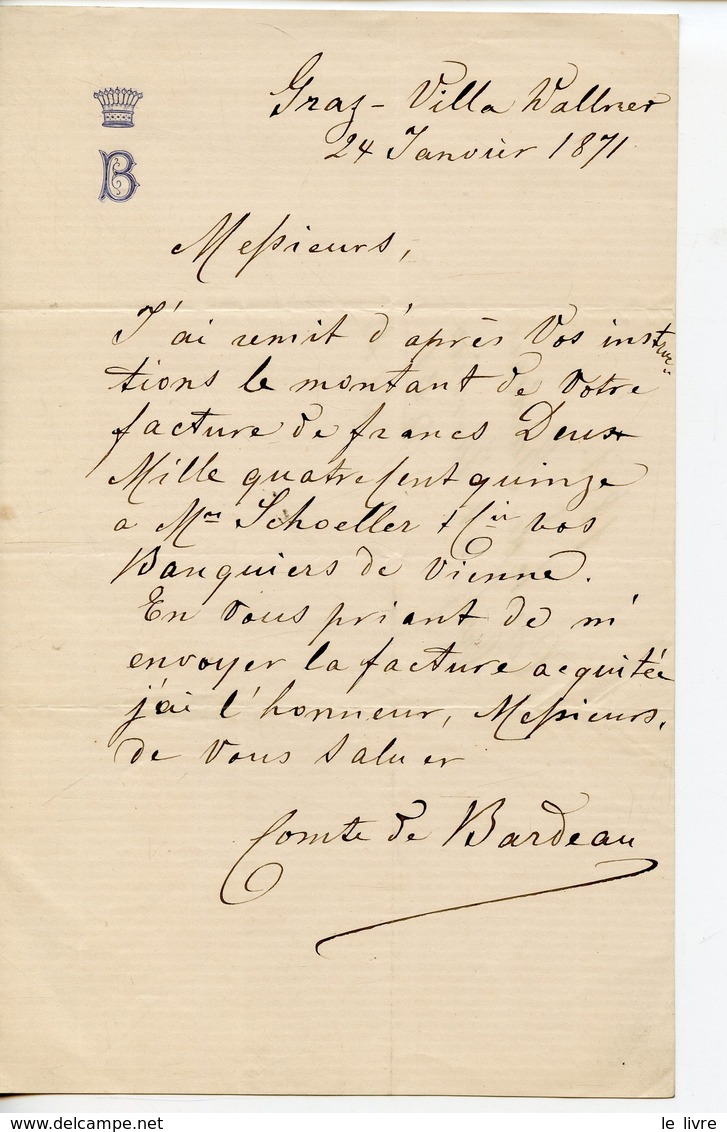 B
Graz - Villa Wallner
24 Janvier 1871
Messieurs,
J'ai remit d'après Vos instruc-
tions le montant de Votre
facture de francs Deux
Mille quatre Cent quinze
a Mrs Schoeller & Cie vos
Banquiers de Vienne.
En Vous priant de m'
envoyer la facture acquitée
j'ai l'honneur, Messieurs,
de Vous saluer
Comte de Bardeau
le livre